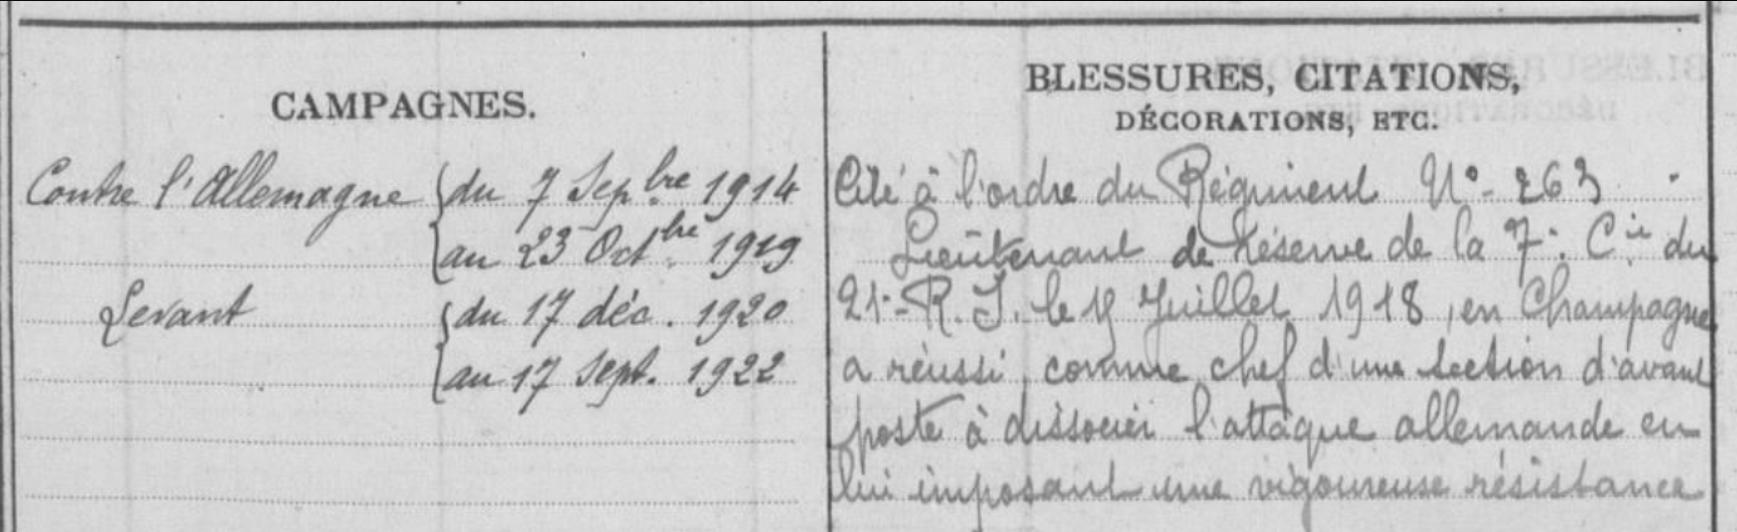 CAMPAGNES.
Contre l'Allemagne { du 7 Sepbre 1914
au 23 Octbre 1919
Levant { du 17 déc. 1920
au 17 sept. 1922
BLESSURES, CITATIONS,
DÉCORATIONS, ETC.
Cité à l'ordre du Régiment N° 263
Lieutenant de Réserve de la 7e Cie du
21e R. I. le Juillet 1918, en Champagne
a réussi, comme chef d'une section d'avant
poste à dissocier l'attaque allemande en
lui imposant une vigoureuse résistance